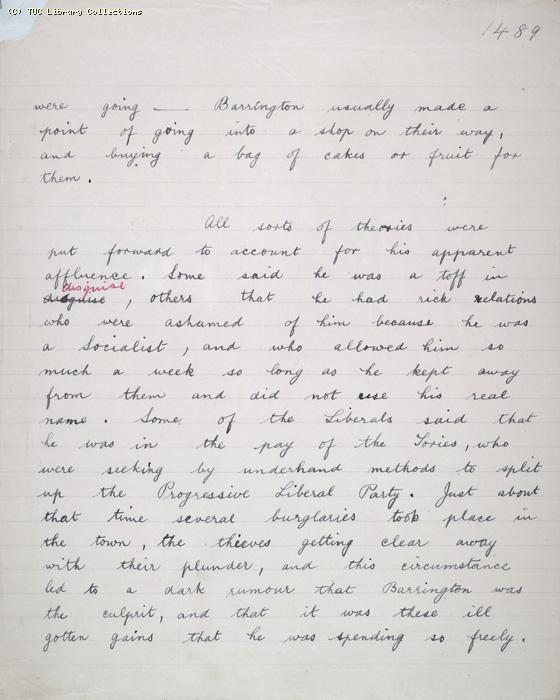 (C) TUC Library Collections
1489
were going — Barrington usually made a
point of going into a shop on their way,
and buying a bag of cakes or fruit for
them.
All sorts of theories were
put forward to account for his apparent
affluence. Some said he was a toff in
disguise
disguise, others that he had rich relations
who were ashamed of him because he was
a Socialist, and who allowed him so
much a week so long as he kept away
from them and did not use his real
name. Some of the Liberals said that
he was in the pay of the Tories, who
were seeking by underhand methods to split
up the Progressive Liberal Party. Just about
that time several burglaries took place in
the town, the thieves getting clear away
with their plunder, and this circumstance
led to a dark rumour that Barrington was
the culprit, and that it was these ill
gotten gains that he was spending so freely.